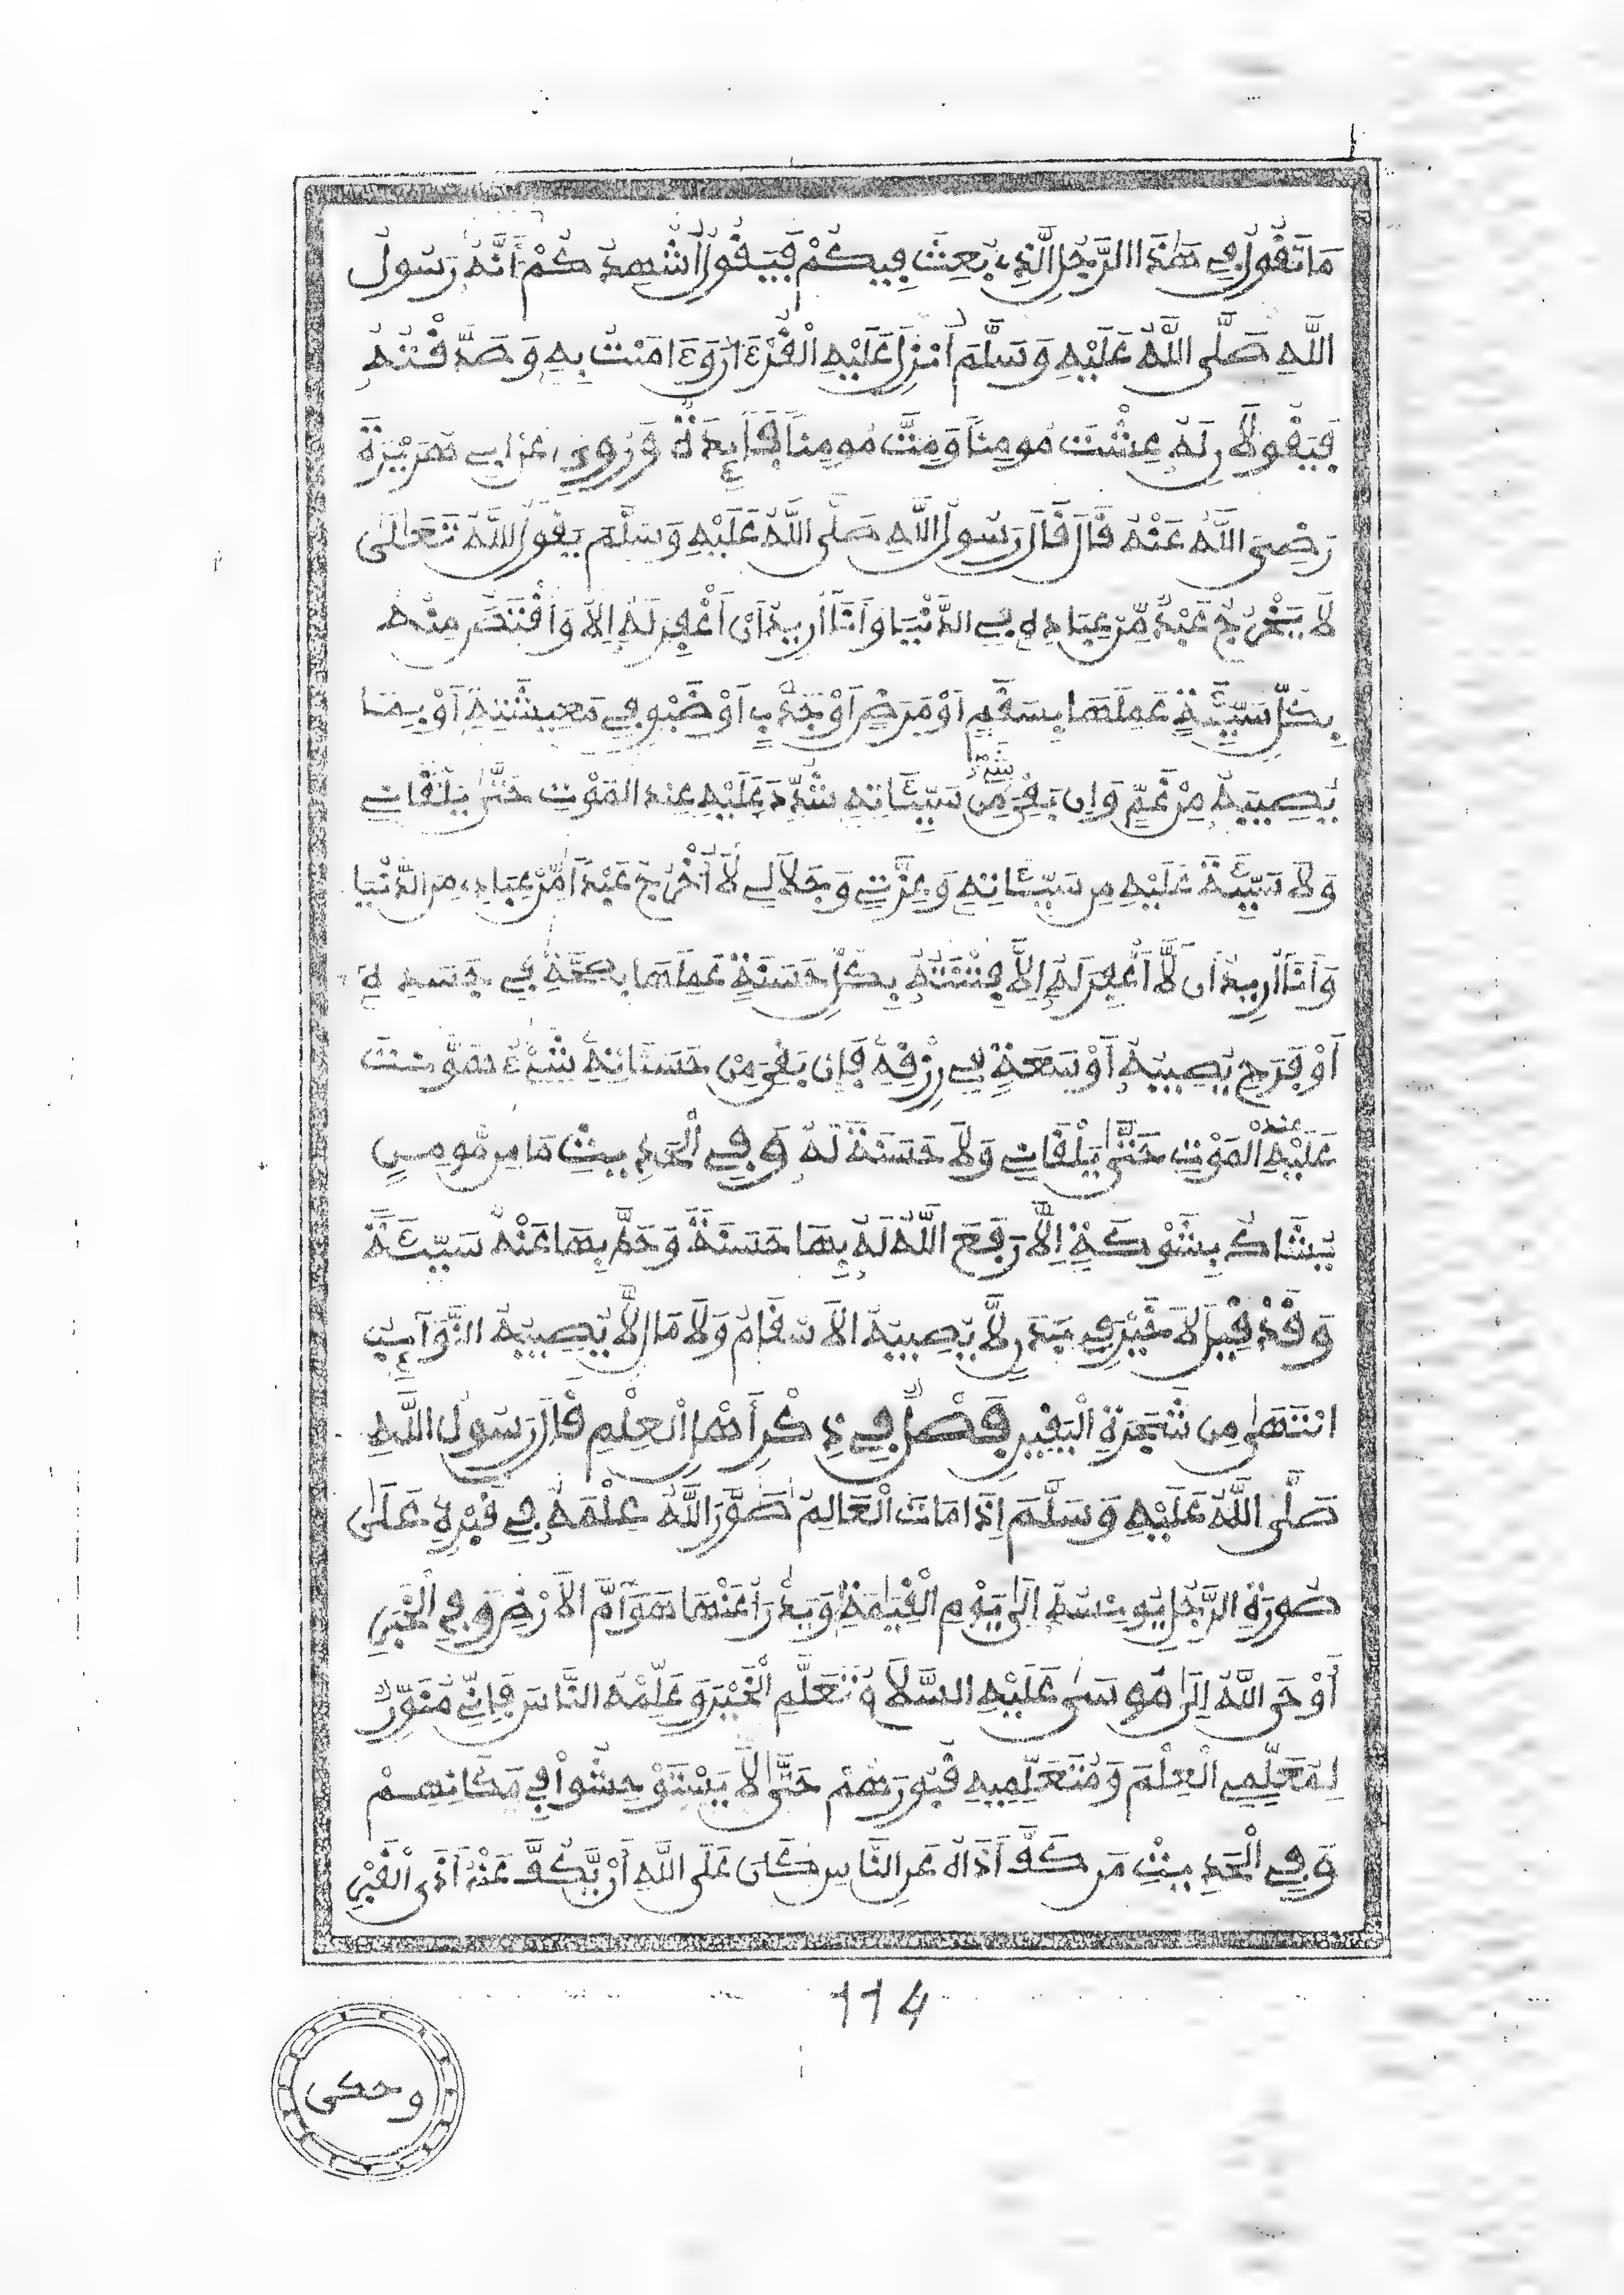 مَا تَقُولُ فِي هَٰذَا الرَّجُلِ الَّذِي بُعِثَ فِيكُمْ فَيَقُولُ أُشْهِدُكُمْ أَنَّهُ رَسُولُ
اللَّهِ صَلَّى اللَّهُ عَلَيْهِ وَسَلَّمَ أُنْزِلَ عَلَيْهِ الْقُرْءَانُ وَءَامَنْتُ بِهِ وَصَدَّقْتُهُ
فَيَقُولَانِ لَهُ عِشْتَ مُومِنًا وَمِتَّ مُومِنًا فَائِدَةٌ وَرُوِيَ عَنْ أَبِي هُرَيْرَةَ
رَضِيَ اللَّهُ عَنْهُ قَالَ قَالَ رَسُولُ اللَّهِ صَلَّى اللَّهُ عَلَيْهِ وَسَلَّمَ يَقُولُ اللَّهُ تَعَالَى
لَا يَخْرُجُ عَبْدٌ مِّنْ عِبَادِهِ فِي الدُّنْيَا وَأَنَا أُرِيدُ أَنْ أَغْفِرَ لَهُ إِلَّا وَأَقْتَصُّ مِنْهُ
بِكُلِّ سَيِّئَةٍ عَمِلَهَا بِسَقَمٍ أَوْ مَرَضٍ أَوْ جَدْبٍ أَوْ ضَيْقٍ فِي مَعِيشَتِهِ أَوْ بِمَا
يُصِيبُهُ مِنْ غَمٍّ وَإِنْ بَقِيَ مِنْ سَيِّئَاتِهِ شَيْءٌ شُدِّدَ عَلَيْهِ عِنْدَ الْمَوْتِ حَتَّى يَلْقَانِي
وَلَا سَيِّئَةَ عَلَيْهِ مِنْ سَيِّئَاتِهِ وَعِزَّتِي وَجَلَالِي لَا أُخْرِجُ عَبْدًا مِّنْ عِبَادِي مِنَ الدُّنْيَا
وَأَنَا أُرِيدُ أَن لَّا أَغْفِرَ لَهُ إِلَّا فِتْنَتُهُ بِكُلِّ حَسَنَةٍ عَمِلَهَا بِصِحَّةٍ فِي جَسَدِهِ
أَوْ فَرَحٍ يُصِيبُهُ أَوْ سَعَةٍ فِي رِزْقِهِ فَإِنْ بَقِيَ مِنْ حَسَنَاتِهِ شَيْءٌ هَوَّنْتُ
عَلَيْهِ عِنْدَ الْمَوْتِ حَتَّى يَلْقَانِي وَلَا حَسَنَةَ لَهُ وَفِي الْحَدِيثِ مَا مِن مُّومِنٍ
يُشَاكُ بِشَوْكَةٍ إِلَّا رَفَعَ اللَّهُ لَهُ بِهَا حَسَنَةً وَحَطَّ بِهَا عَنْهُ سَيِّئَةً
وَقَدْ قِيلَ لَا خَيْرَ فِي بَدَنٍ لَّا يُصِيبُهُ الْأَسْقَامُ وَلَا مَالٍ لَّا يُصِيبُهُ النَّوَائِبُ
انْتَهَى مِنْ شَجَرَةِ الْيَقِينِ فَصْلٌ فِي ذِكْرِ أَهْلِ الْعِلْمِ قَالَ رَسُولُ اللَّهِ
صَلَّى اللَّهُ عَلَيْهِ وَسَلَّمَ إِذَا مَاتَ الْعَالِمُ صَوَّرَ اللَّهُ عِلْمَهُ فِي قَبْرِهِ عَلَى
صُورَةِ الرَّجُلِ يُونِسُهُ إِلَى يَوْمِ الْقِيَٰمَةِ وَيَدْرَأُ عَنْهَا هَوَآمَّ الْأَرْضِ وَفِي الْخَبَرِ
أَوْحَى اللَّهُ إِلَى مُوسَى عَلَيْهِ السَّلَامُ تَعَلَّمِ الْخَيْرَ وَعَلِّمْهُ النَّاسَ فَإِنِّي مُنَوِّرٌ
لِمُعَلِّمِي الْعِلْمَ وَمُتَعَلِّمِيهِ قُبُورَهُمْ حَتَّى لَا يَسْتَوْحِشُوا فِي مَكَانِهِمْ
وَفِي الْحَدِيثِ مَن كَفَّ أَذَاهُ عَنِ النَّاسِ كَانَ عَلَى اللَّهِ أَنْ يَّكُفَّ عَنْهُ أَذَى الْقَبْرِ
114
وحكى